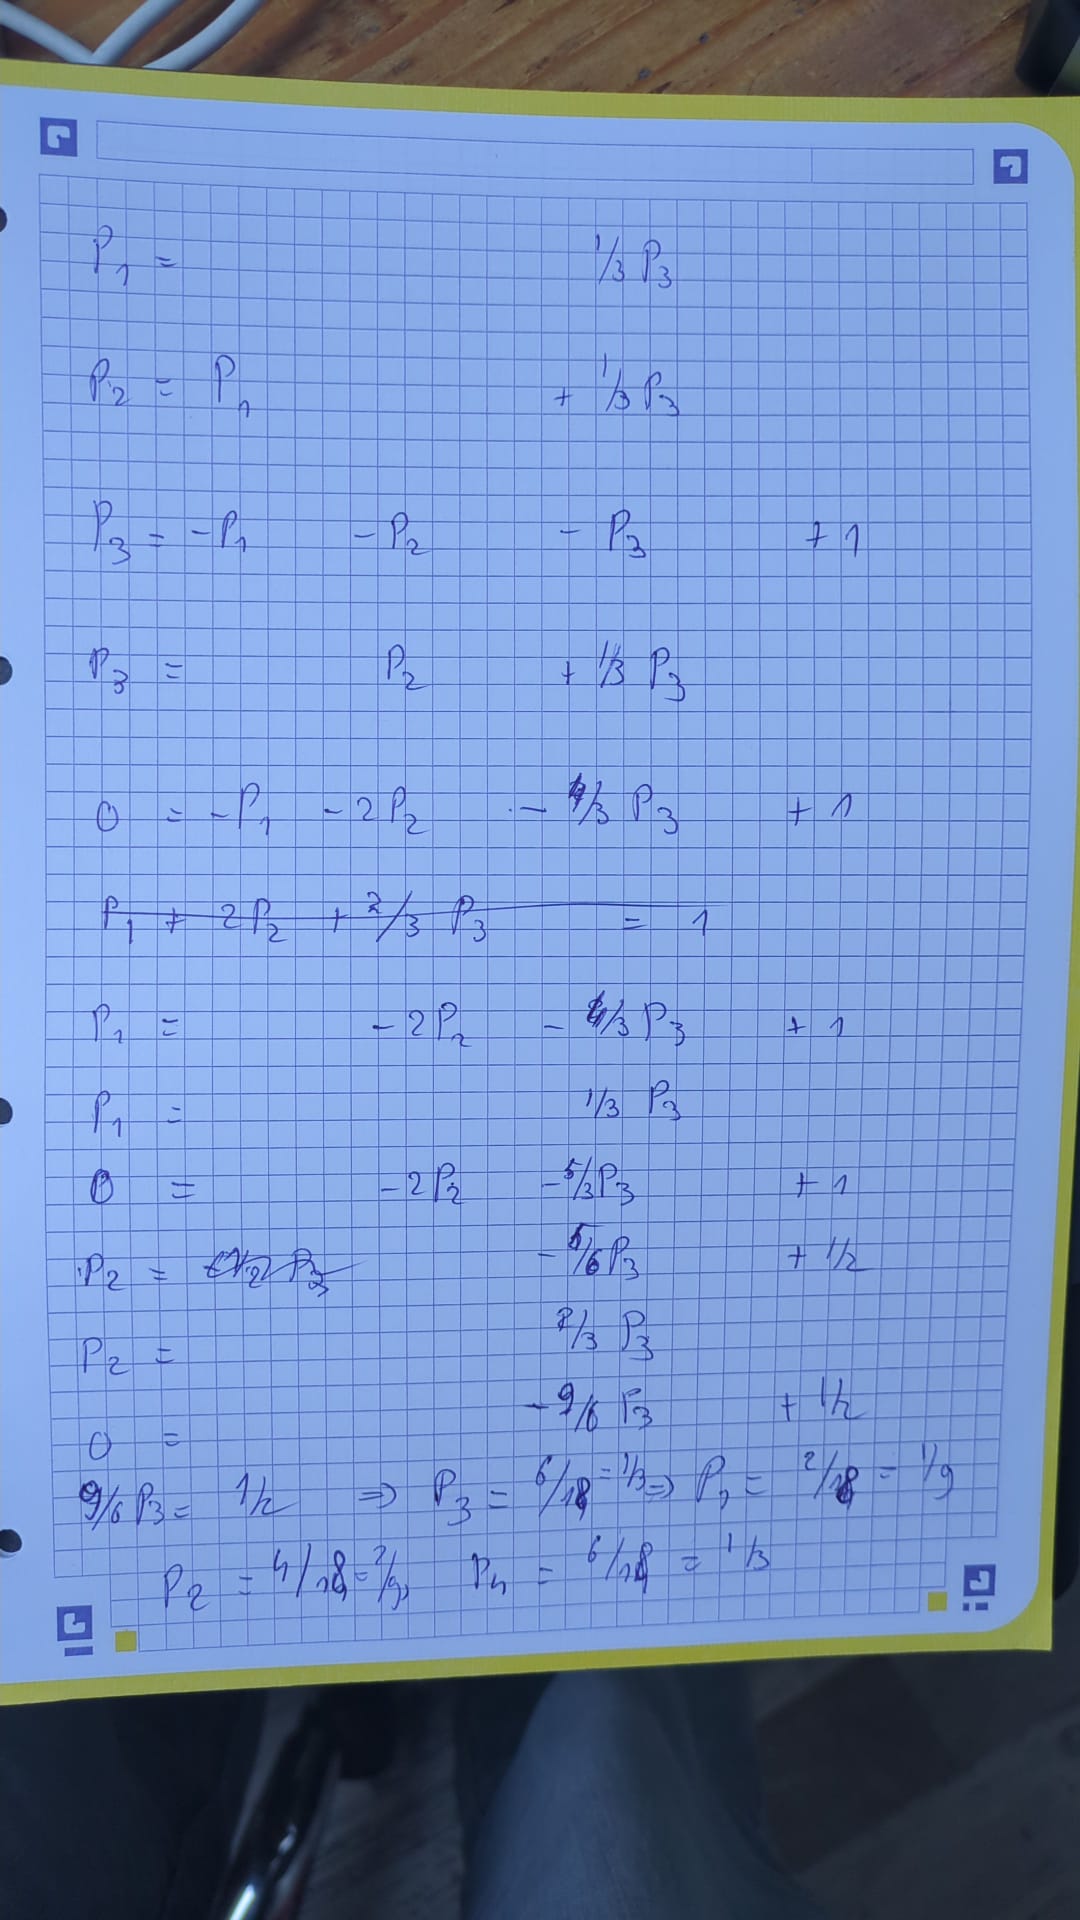 P₁ = 1/3 P₃
P₂ = P₁ + 1/3 P₃
P₃ = -P₁ -P₂ - P₃ + 1
P₃ = P₂ + 1/3 P₃
0 = -P₁ - 2P₂ - 4/3 P₃ + 1
P₁ + 2P₂ + 2/3 P₃ = 1
P₁ = - 2P₂ - 4/3 P₃ + 1
P₁ = 1/3 P₃
0 = - 2P₂ - 5/3 P₃ + 1
P₂ = - 5/6 P₃ + 1/2
P₂ = 2/3 P₃
0 = - 9/6 P₃ + 1/2
9/6 P₃ = 1/2 ⇒ P₃ = 6/18 = 1/3 ⇒ P₁ = 2/18 = 1/9
P₂ = 4/18 = 2/9, P₄ = 6/18 = 1/3